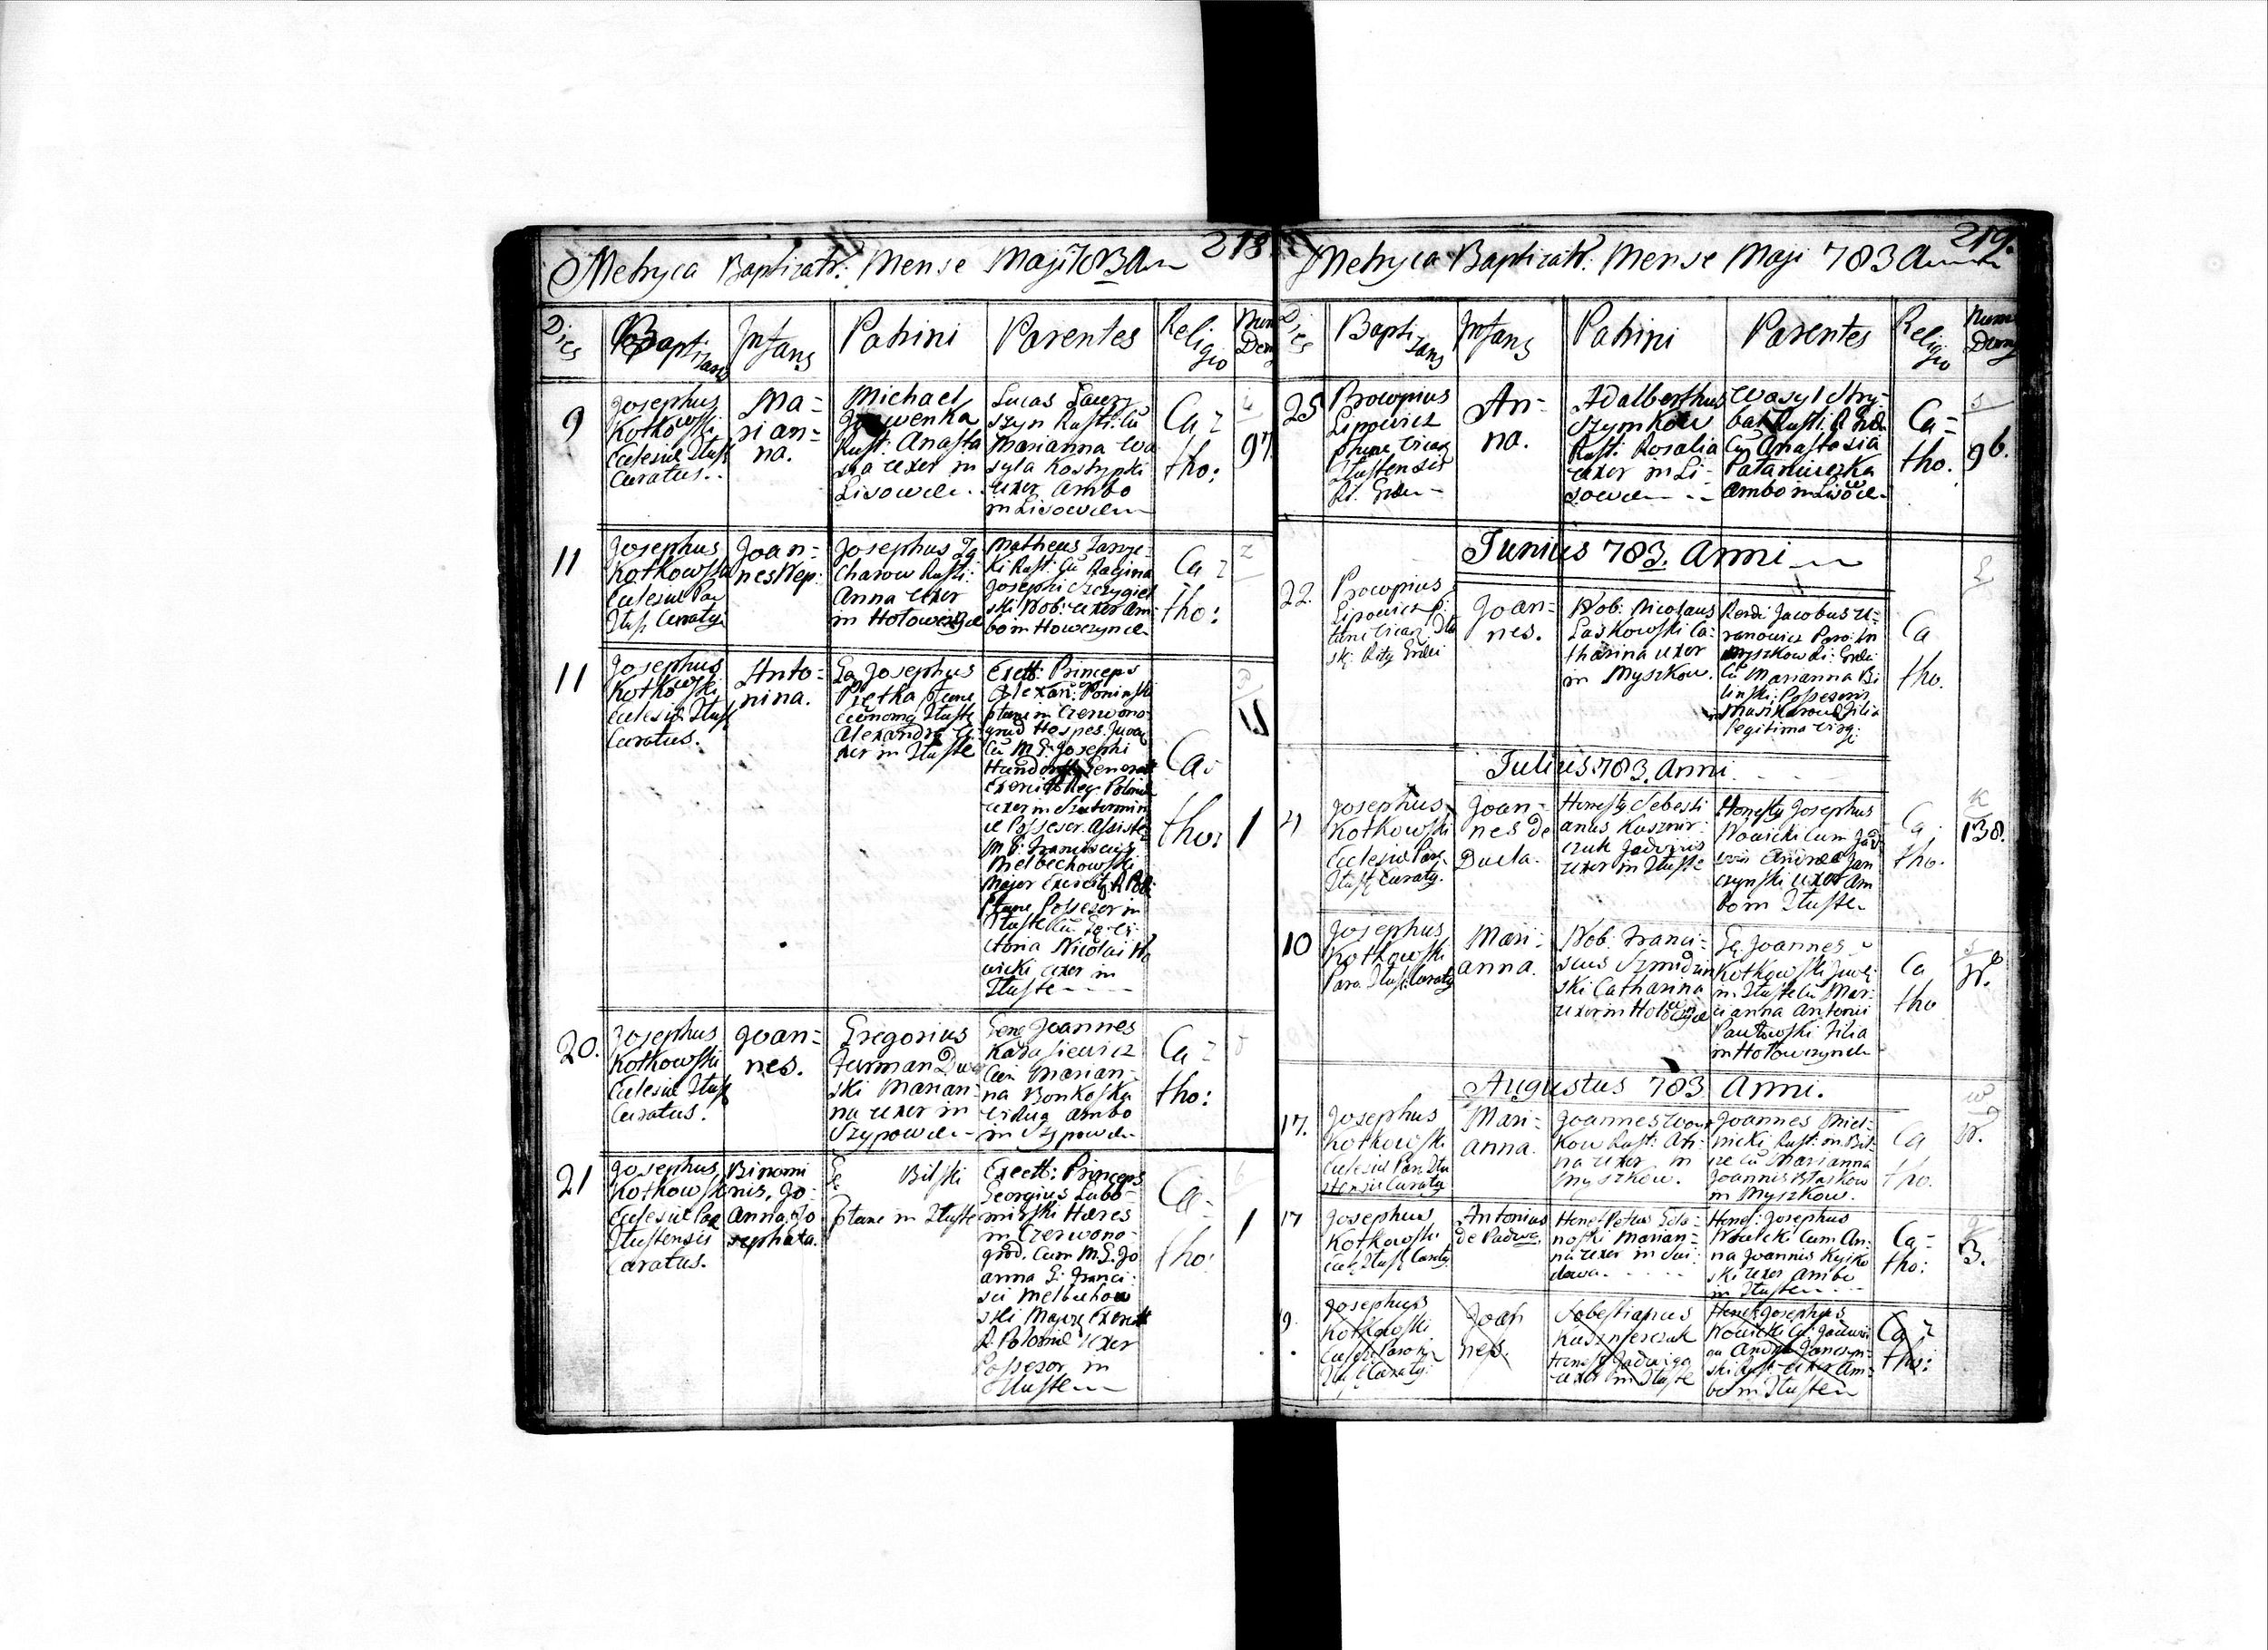 Metryca Baptizatr: Mense Maji 783 An
218
Dies
Baptizans
Infans
Patrini
Parentes
Religio
Num
Dom
9
Josephus
Kotkowski
Eclesiæ Tlust
Curatus.
Ma=
rian=
na.
Michael
Rust: Anasta
sia uxor in
Lisowce
Lucas Lawry
szyn Rusti: Cũ
Marianna Wa
syla Kostrypki
uxor ambo
in Lisowce
Ca=
tho:
97
11
Josephus
Kotkowski
Eclesiæ Par
Tlust Curatg
Joan=
nes Nep:
Josephus Za
charow Rusti:
Anna uxor
in Holowczyce
Matheus
ki Rust: Cũ Regina
Josephi Szczygiel
ski Nob: uxor am
bo in Howczynce
Ca=
tho:
11
Josephus
Kotkowski
Eclesiæ Tlust
Curatus.
Anto=
nina.
Gg Josephus
Pętka ptunc
Economg Tluste
Alexandra u
xor in Tluste
Excell: Princeps
Alexan: Poninski
ptunc in Czerwono
grud Hospes
Cũ M. G. Josephi
General
Exercit Reg: Poloniæ
uxor in
æ Possesor. Assiste
M. G. Franciscus
Mielbechowski
Major Exercitg R Pol:
Ptunc Possesor in
Tluste Cũ
ctoria Nicolai
wicki uxor in
Tluste
Ca=
tho:
1
20.
Josephus
Kotkowski
Eclesiæ Tlust
Curatus.
Joan=
nes.
Gregorius
Furman Dwor
ski Marian=
na uxor in
Szypowce
Geng Joannes
Karasiewicz
Cum Marian=
na Bonkoska
Vidua ambo
in Szypowce
Ca=
tho:
21
Josephus
Kotkowski
Eclesiæ Par
Tlustensis
Curatus.
Binomi
nis, Jo
anna, Jo
sephata.
Gg Bilski
ptunc in Tluste
Excell: Princeps
Georgius Lubo=
mirski Hæres
in Czerwono=
grod. Cum M. G. Jo
anna G: Franci
sci Melbechow
ski Majorg Exercit
R Poloniæ uxor
Possesor in
Tluste
Ca=
tho:
1
Metryca Baptizatr: Mense Maji 783 Anni
219.
Dies
Baptizans
Infans
Patrini
Parentes
Religio
Num
Dom
25
Procopius
Lipowicz
Ptunc Vicarg
Tlustensis
An=
na.
Adalberthus
Szymkow
Rust: Rosalia
uxor in Li=
sowce
Wasyl Stry=
bak Rusti: R Græ
Cũ Anastasia
Pataniuczka
ambo in Lisowce
Ca=
tho.
96.
Junius 783. Anni
22.
Procopius
Lipowicz P:
tunc Vicarg Tlu
ski Ritg Græci
Joan=
nes.
Nob: Nicolaus
Laskowski Ca=
tharina uxor
in Myszkow.
Rendi Jacobus U=
ranowicz Paro: In
Myszkow Ri: Græci
Cũ Marianna Bi
linski: Possesoris
in Muszkarow Filia
legitima Virg:
Ca
tho.
Julius 783. Anni
4
Josephus
Kotkowski
Eclesiæ Par
Tlustę Curatg.
Joan=
nes de
Ducla.
Honestg Sebesti
anus Kusznir=
czuk Jadwiga
uxor in Tluste
Honestg Josephus
Nowicki Cum Jad
wiga Andrea Jan
czynski uxor am
bo in Tluste
Ca
tho.
138.
10
Josephus
Kotkowski
Paro. Tlust: Curatg
Mari=
anna.
Nob: Franci=
scus Szmidzin
ski Catharina
uxor in Holowczyce
Gg: Joannes
Kotkowski
in Tluste Cũ Mar=
cianna Antonii
Pawlowski Filia
in Holowczynce
Ca
tho
Augustus 783 Anni.
17.
Josephus
Kotkowski
Eclesiæ Par. Tlu
stensis Curatg
Mari=
anna.
Joannes
kow Rust: An=
na uxor in
Myszkow.
Joannes Miel=
nicki Rust: in Bil=
cze Cũ Marianna
Joannis Blaskow
in Myszkow.
Ca
tho.
17
Josephus
Kotkowski
Eclę Tlustę Curatg
Antonius
de Padwa.
Hone: Petrus
noski Marian=
na uxor in Swi
dowa.
Honest: Josephus
Nowicki Cum An=
na Joannis Kyiko
ski uxor ambo
in Tluste
Ca=
tho:
3.
9.
Josephus
Kotkowski
Tlustę Curatg.
Joan
nes.
Sobestianus
Kusznierczuk
Honestg Jadwiga
uxor in Tluste
Honest: Josephus
Nowicki Cũ Jadwi
ga Andreæ Janczyn=
ski Rust: uxor Am=
bo in Tluste
Ca=
tho: